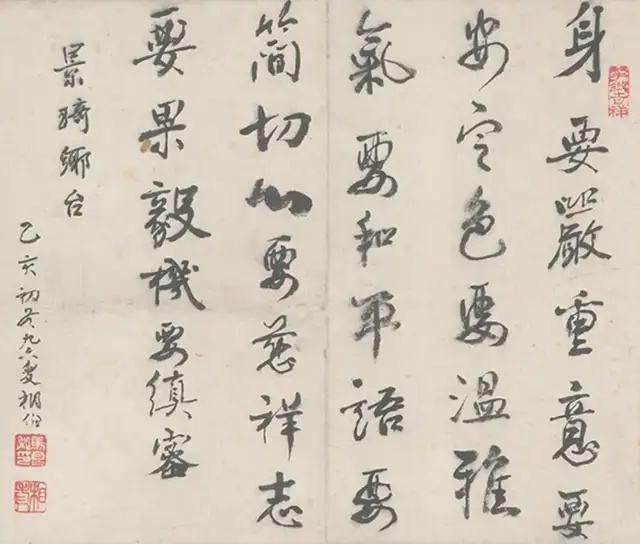 身要嚴重意要
安定色要溫雅
氣要和平語要
簡切心要慈祥志
要果毅機要縝密
景琦鄉台
乙亥初冬九六叟相伯